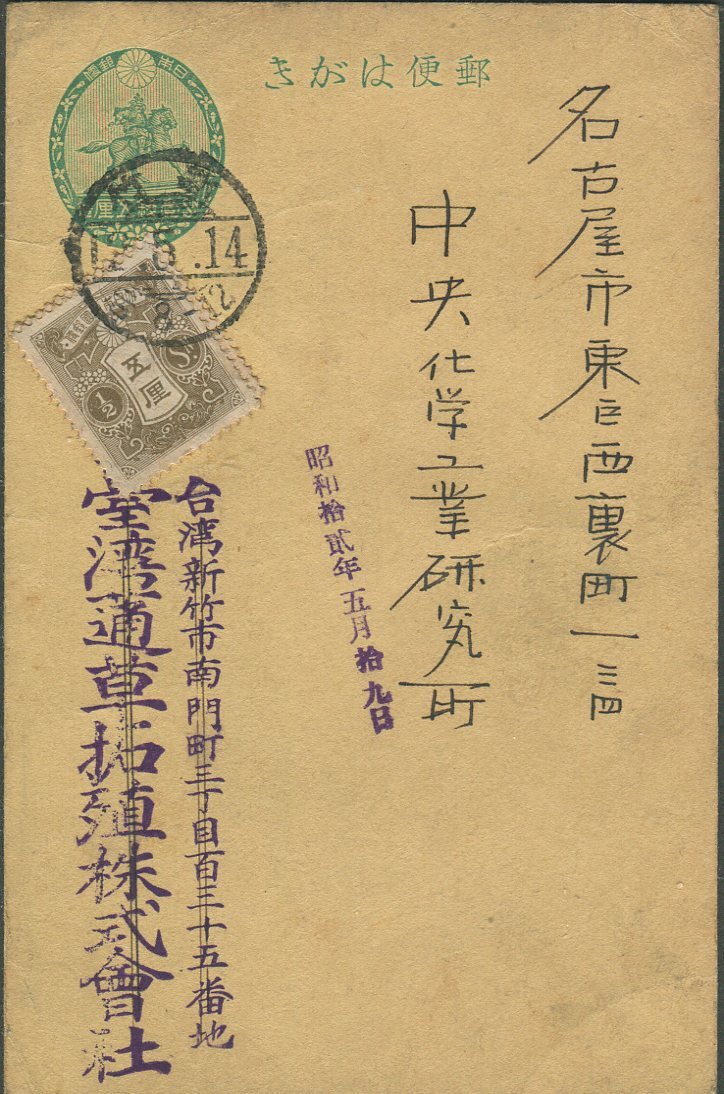 郵便はがき
日本郵便
名古屋市東区西裏町一三四
中央化学工業研究所
昭和拾貳年五月拾九日
台湾新竹市南門町三丁目百三十五番地
臺湾通草拓殖株式會社
12.5.14
五厘
1/2